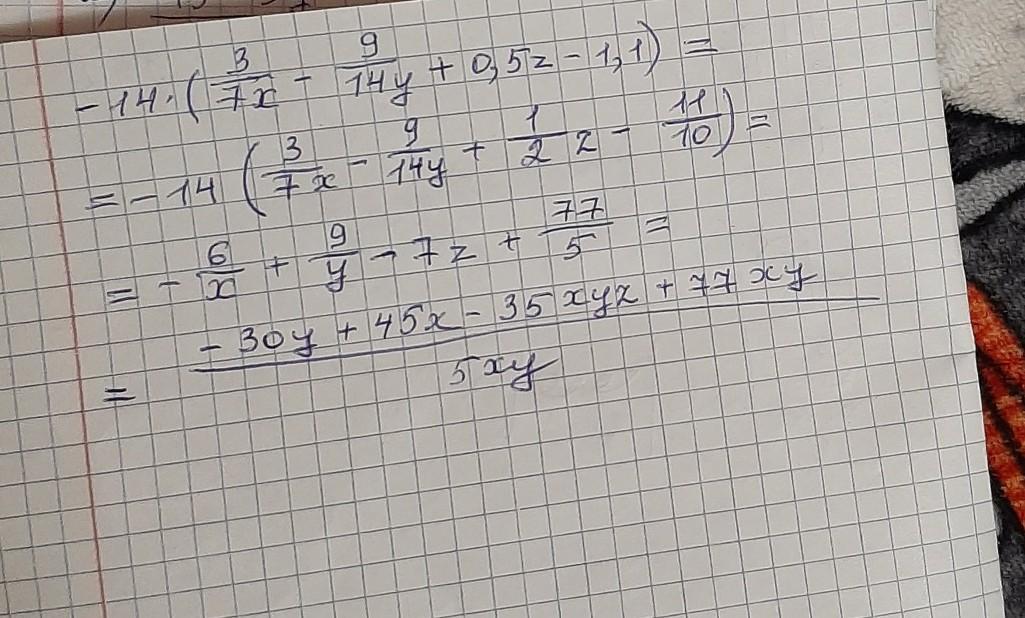 -14·(3/7x - 9/14y + 0,5z - 1,1) =
= -14 (3/7x - 9/14y + 1/2 z - 11/10) =
= - 6/x + 9/y - 7z + 77/5 =
= (-30y + 45x - 35xyz + 77xy)/5xy